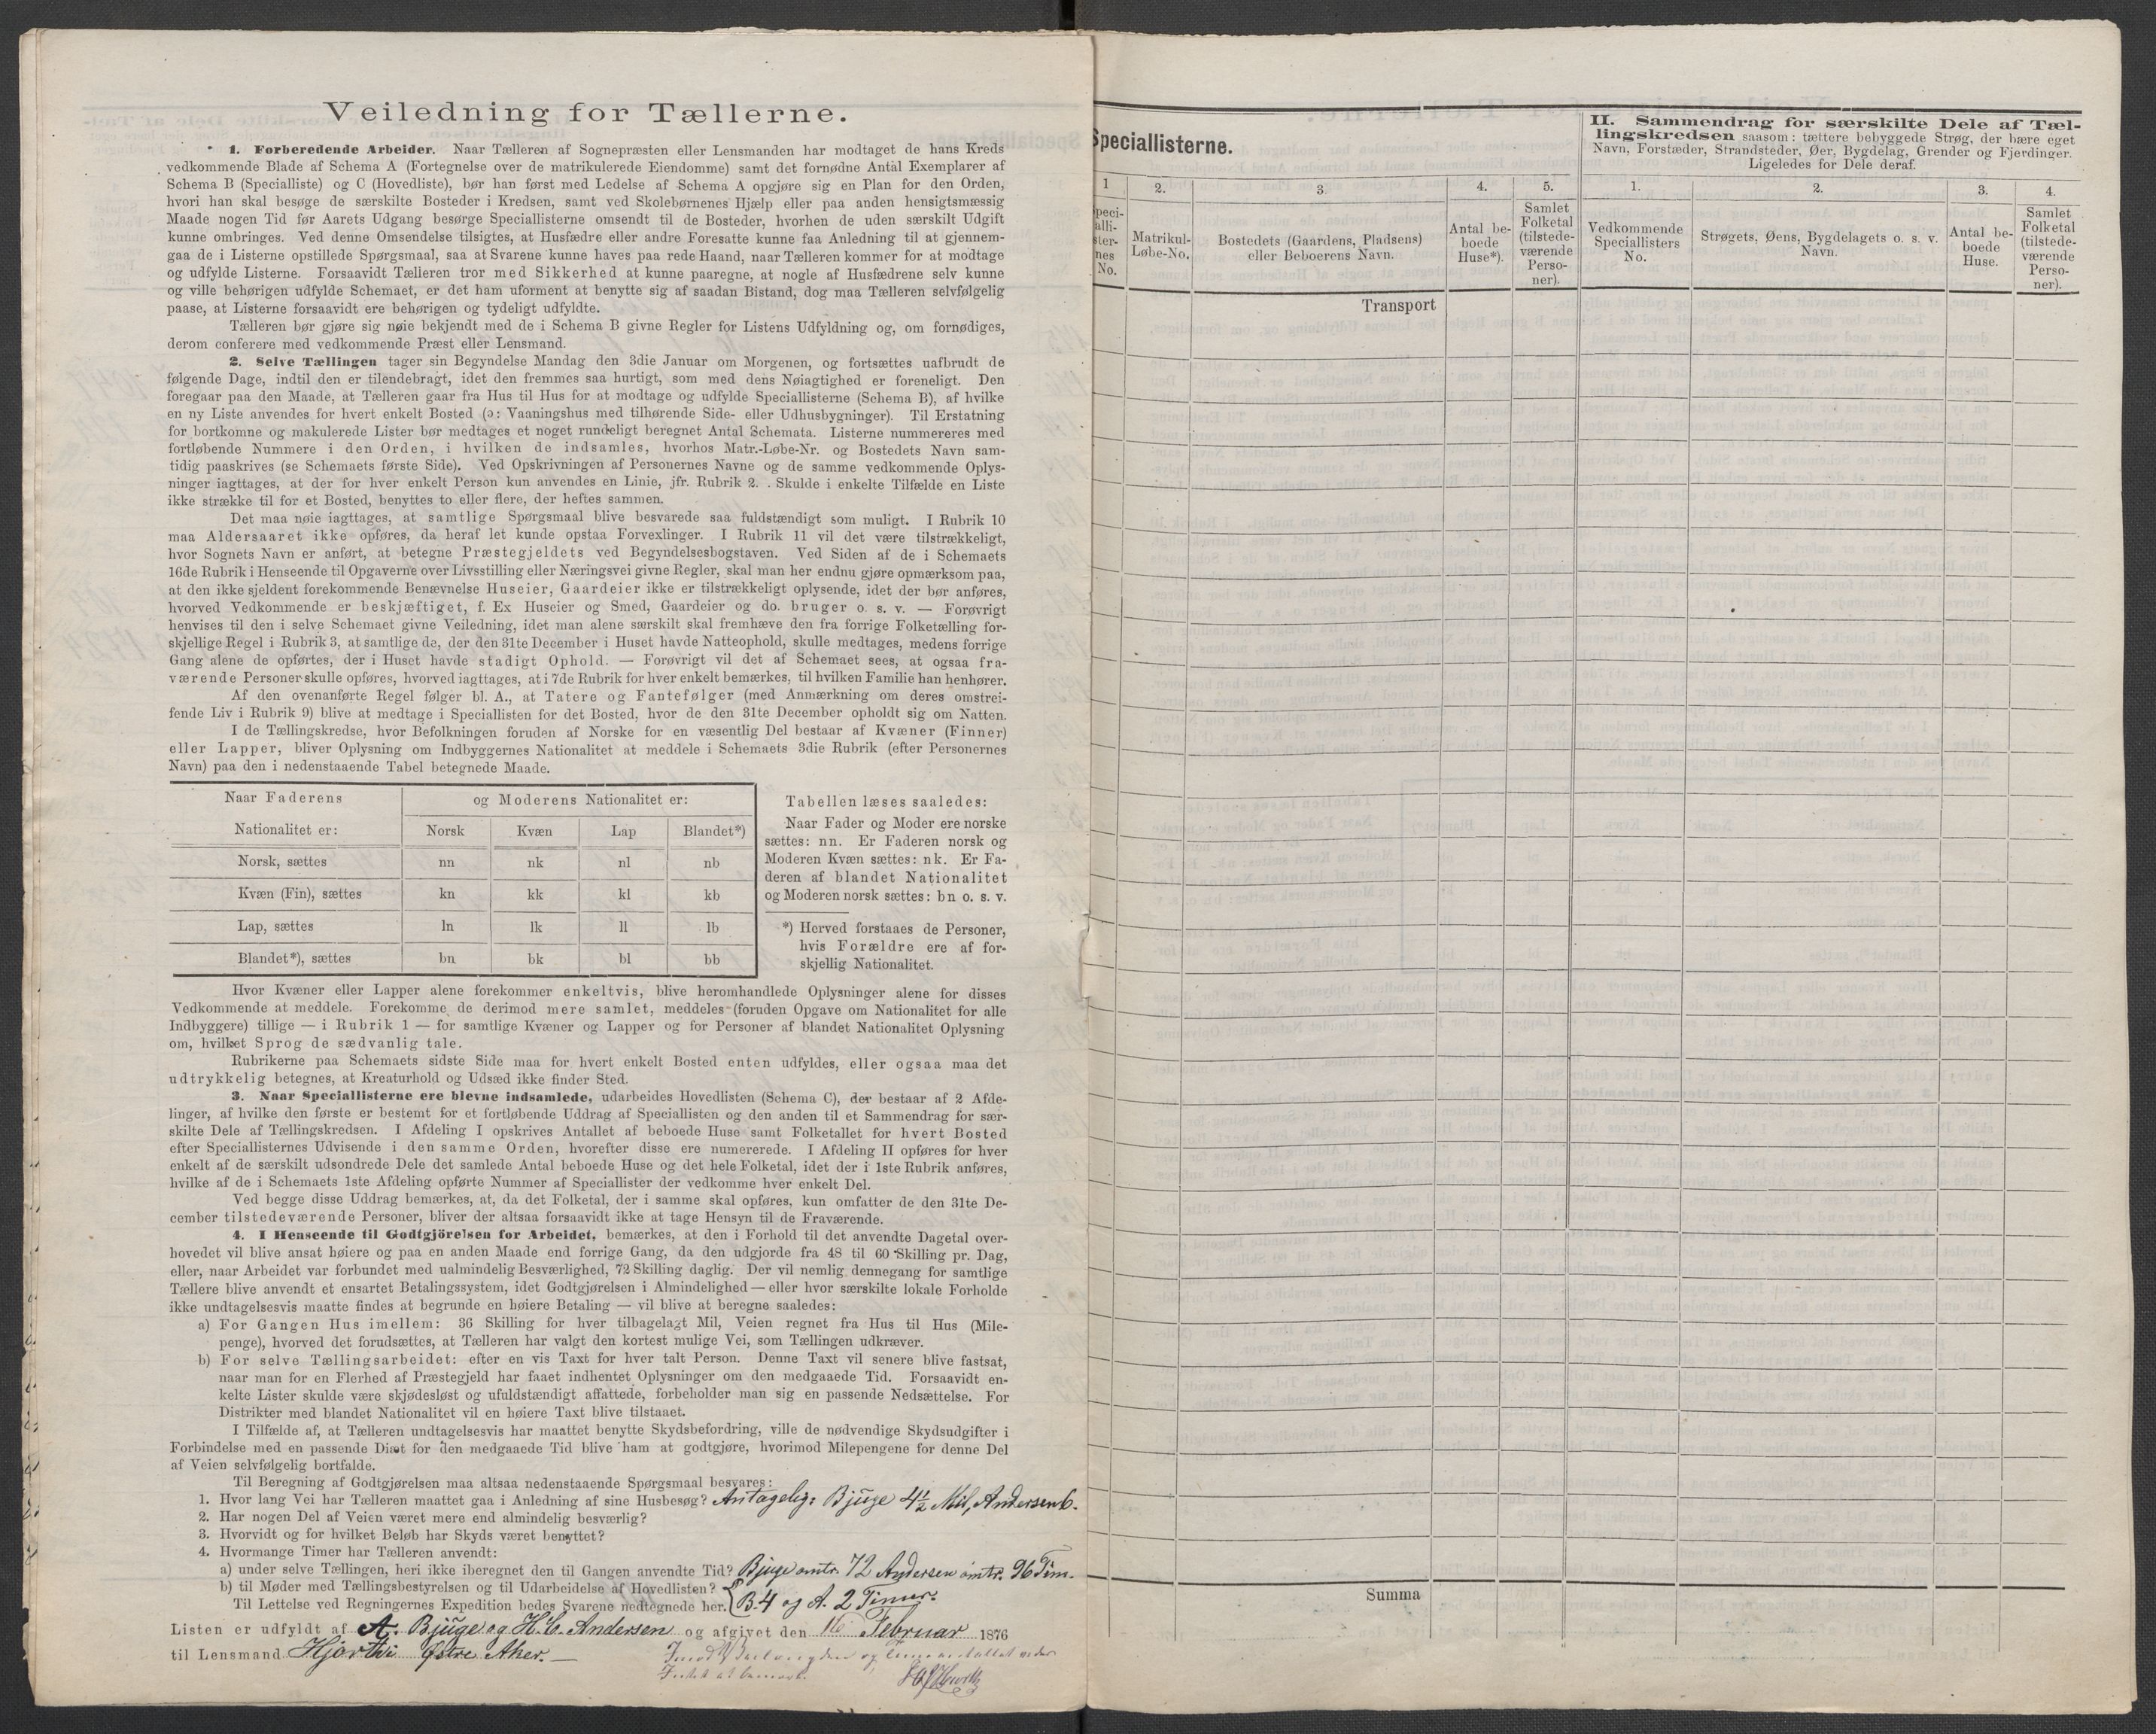 Veiledning for Tællerne.
1. Forberedende Arbeider. Naar Tælleren af Sognepræsten eller Lensmanden har modtaget de hans Kreds
vedkommende Blade af Schema A (Fortegnelse over de matrikulerede Eiendomme) samt det fornødne Antal Exemplarer af
Schema B (Specialliste) og C (Hovedliste), bør han først med Ledelse af Schema A opgjøre sig en Plan for den Orden,
hvori han skal besøge de særskilte Bosteder i Kredsen, samt ved Skolebørnenes Hjælp eller paa anden hensigtsmæssig
Maade nogen Tid før Aarets Udgang besørge Speciallisterne omsendt til de Bosteder, hvorhen de uden særskilt Udgift
kunne ombringes. Ved denne Omsendelse tilsigtes, at Husfædre eller andre Foresatte kunne faa Anledning til at gjennem-
gaa de i Listerne opstillede Spørgsmaal, saa at Svarene kunne haves paa rede Haand, naar Tælleren kommer for at modtage
og udfylde Listerne. Forsaavidt Tælleren tror med Sikkerhed at kunne paaregne, at nogle af Husfædrene selv kunne
og ville behørigen udfylde Schemaet, er det ham uforment at benytte sig af saadan Bistand, dog maa Tælleren selvfølgelig
paase, at Listerne forsaavidt ere behørigen og tydeligt udfyldte.
Tælleren bør gjøre sig nøie bekjendt med de i Schema B givne Regler for Listens Udfyldning og, om fornødiges,
derom conferere med vedkommende Præst eller Lensmand.
2. Selve Tællingen tager sin Begyndelse Mandag den 3die Januar om Morgenen, og fortsættes uafbrudt de
følgende Dage, indtil den er tilendebragt, idet den fremmes saa hurtigt, som med dens Nøiagtighed er foreneligt. Den
foregaar paa den Maade, at Tælleren gaar fra Hus til Hus for at modtage og udfylde Speciallisterne (Schema B), af hvilke
en ny Liste anvendes for hvert enkelt Bosted (ɔ: Vaaningshus med tilhørende Side- eller Udhusbygninger). Til Erstatning
for bortkomne og makulerede Lister bør medtages et noget rundeligt beregnet Antal Schemata. Listerne nummereres med
fortløbende Nummere i den Orden, i hvilken de indsamles, hvorhos Matr.-Løbe-Nr. og Bostedets Navn sam-
tidig paaskrives (se Schemaets første Side). Ved Opskrivningen af Personernes Navne og de samme vedkommende Oplys-
ninger iagttages, at der for hver enkelt Person kun anvendes en Linie, jfr. Rubrik 2. Skulde i enkelte Tilfælde en Liste
ikke strække til for et Bosted, benyttes to eller flere, der heftes sammen.
Det maa nøie iagttages, at samtlige Spørgsmaal blive besvarede saa fuldstændigt som muligt. I Rubrik 10
maa Aldersaaret ikke opføres, da heraf let kunde opstaa Forvexlinger. I Rubrik 11 vil det være tilstrækkeligt,
hvor Sognets Navn er anført, at betegne Præstegjeldets ved Begyndelsesbogstaven. Ved Siden af de i Schemaets
16de Rubrik i Henseende til Opgaverne over Livsstilling eller Næringsvei givne Regler, skal man her endnu gjøre opmærksom paa,
at den ikke sjeldent forekommende Benævnelse Huseier, Gaardeier ikke er tilstrækkeligt oplysende, idet der bør anføres,
hvorved Vedkommende er beskjæftiget, f. Ex Huseier og Smed, Gaardeier og do. bruger o. s. v. — Forøvrigt
henvises til den i selve Schemaet givne Veiledning, idet man alene særskilt skal fremhæve den fra forrige Folketælling for-
skjellige Regel i Rubrik 3, at samtlige de, der den 31te December i Huset havde Natteophold, skulle medtages, medens forrige
Gang alene de opførtes, der i Huset havde stadigt Ophold. — Forøvrigt vil det af Schemaet sees, at ogsaa fra-
værende Personer skulle opføres, hvorved iagttages, at i 7de Rubrik for hver enkelt bemærkes, til hvilken Familie han henhører.
Af den ovenanførte Regel følger bl. A., at Tatere og Fantefølger (med Anmærkning om deres omstrei-
fende Liv i Rubrik 9) blive at medtage i Speciallisten for det Bosted, hvor de den 31te December opholdt sig om Natten.
I de Tællingskredse, hvor Befolkningen foruden af Norske for en væsentlig Del bestaar af Kvæner (Finner)
eller Lapper, bliver Oplysning om Indbyggernes Nationalitet at meddele i Schemaets 3die Rubrik (efter Personernes
Navn) paa den i nedenstaaende Tabel betegnede Maade.
Naar Faderens og Moderens Nationalitet er:
Nationalitet er: Norsk Kvæn Lap Blandet*)
Norsk, sættes nn nk nl nb
Kvæn (Fin), sættes kn kk kl kb
Lap, sættes ln lk ll lb
Blandet*), sættes bn bk bl bb
Tabellen læses saaledes:
Naar Fader og Moder ere norske
sættes: nn. Er Faderen norsk og
Moderen Kvæn sættes: nk. Er Fa-
deren af blandet Nationalitet
og Moderen norsk sættes: bn o. s. v.
*) Herved forstaaes de Personer,
hvis Forældre ere af for-
skjellig Nationalitet.
Hvor Kvæner eller Lapper alene forekommer enkeltvis, blive heromhandlede Oplysninger alene for disses
Vedkommende at meddele. Forekomme de derimod mere samlet, meddeles (foruden Opgave om Nationalitet for alle
Indbyggere) tillige — i Rubrik 1 — for samtlige Kvæner og Lapper og for Personer af blandet Nationalitet Oplysning
om, hvilket Sprog de sædvanlig tale.
Rubrikerne paa Schemaets sidste Side maa for hvert enkelt Bosted enten udfyldes, eller ogsaa maa det
udtrykkelig betegnes, at Kreaturhold og Udsæd ikke finder Sted.
3. Naar Speciallisterne ere blevne indsamlede, udarbeides Hovedlisten (Schema C), der bestaar af 2 Afde-
linger, af hvilke den første er bestemt for et fortløbende Uddrag af Speciallisten og den anden til et Sammendrag for sær-
skilte Dele af Tællingskredsen. I Afdeling I opskrives Antallet af beboede Huse samt Folketallet for hvert Bosted
efter Speciallisternes Udvisende i den samme Orden, hvorefter disse ere numererede. I Afdeling II opføres for hver
enkelt af de særskilt udsondrede Dele det samlede Antal beboede Huse og det hele Folketal, idet der i 1ste Rubrik anføres,
hvilke af de i Schemaets 1ste Afdeling opførte Nummer af Speciallister der vedkomme hver enkelt Del.
Ved begge disse Uddrag bemærkes, at, da det Folketal, der i samme skal opføres, kun omfatter de den 31te De-
cember tilstedeværende Personer, bliver der altsaa forsaavidt ikke at tage Hensyn til de Fraværende.
4. I Henseende til Godtgjörelsen for Arbeidet, bemærkes, at den i Forhold til det anvendte Dagetal over-
hovedet vil blive ansat høiere og paa en anden Maade end forrige Gang, da den udgjorde fra 48 til 60 Skilling pr. Dag,
eller, naar Arbeidet var forbundet med ualmindelig Besværlighed, 72 Skilling daglig. Der vil nemlig dennegang for samtlige
Tællere blive anvendt et ensartet Betalingssystem, idet Godtgjørelsen i Almindelighed — eller hvor særskilte lokale Forholde
ikke undtagelsesvis maatte findes at begrunde en høiere Betaling — vil blive at beregne saaledes:
a) For Gangen Hus imellem: 36 Skilling for hver tilbagelagt Mil, Veien regnet fra Hus til Hus (Mile-
penge), hvorved det forudsættes, at Tælleren har valgt den kortest mulige Vei, som Tællingen udkræver.
b) For selve Tællingsarbeidet: efter en vis Taxt for hver talt Person. Denne Taxt vil senere blive fastsat,
naar man for en Flerhed af Præstegjeld har faaet indhentet Oplysninger om den medgaaede Tid. Forsaavidt en-
kelte Lister skulde være skjødesløst og ufuldstændigt affattede, forbeholder man sig en passende Nedsættelse. For
Distrikter med blandet Nationalitet vil en høiere Taxt blive tilstaaet.
I Tilfælde af, at Tælleren undtagelsesvis har maattet benytte Skydsbefordring, ville de nødvendige Skydsudgifter i
Forbindelse med en passende Diæt for den medgaaede Tid blive ham at godtgjøre, hvorimod Milepengene for denne Del
af Veien selvfølgelig bortfalde.
Til Beregning af Godtgjørelsen maa altsaa nedenstaaende Spørgsmaal besvares:
1. Hvor lang Vei har Tælleren maattet gaa i Anledning af sine Husbesøg? Antagelig: Bjuge 4½ Mil, Andersen 6.
2. Har nogen Del af Veien været mere end almindelig besværlig?
3. Hvorvidt og for hvilket Beløb har Skyds været benyttet?
4. Hvormange Timer har Tælleren anvendt:
a) under selve Tællingen, heri ikke iberegnet den til Gangen anvendte Tid? Bjuge omtr. 72 Andersen omtr. 96 Tim.
b) til Møder med Tællingsbestyrelsen og til Udarbeidelse af Hovedlisten?
Til Lettelse ved Regningernes Expedition bedes Svarene nedtegnede her. B. 4 og A. 2 Timer.
Listen er udfyldt af A. Bjuge og H. C. Andersen og afgivet den 16 Februar 1876
til Lensmand Hjorth i Østre Aker.
Speciallisterne.
1 2. 3. 4. 5.
Speci-
alli-
ster-
nes
No.
Matrikul-
Løbe-No.
Bostedets (Gaardens, Pladsens)
eller Beboerens Navn.
Antal be-
boede
Huse*).
Samlet
Folketal
(tilstede-
værende
Perso-
ner).
Transport
Summa
II. Sammendrag for særskilte Dele af Tæl-
lingskredsen saasom: tættere bebyggede Strøg, der bære eget
Navn, Forstæder, Strandsteder, Øer, Bygdelag, Grender og Fjerdinger.
Ligeledes for Dele deraf.
1. 2. 3. 4.
Vedkommende
Speciallisters
No.
Strøgets, Øens, Bygdelagets o. s. v.
Navn.
Antal be-
boede
Huse.
Samlet
Folketal
(tilstede-
værende
Perso-
ner).